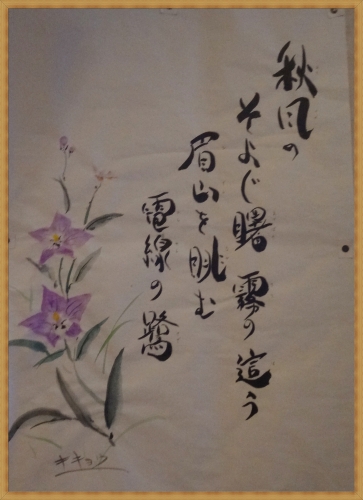 秋風の
そよぐ曙 霧の這う
眉山を眺む
電線の鷺
キキョウ